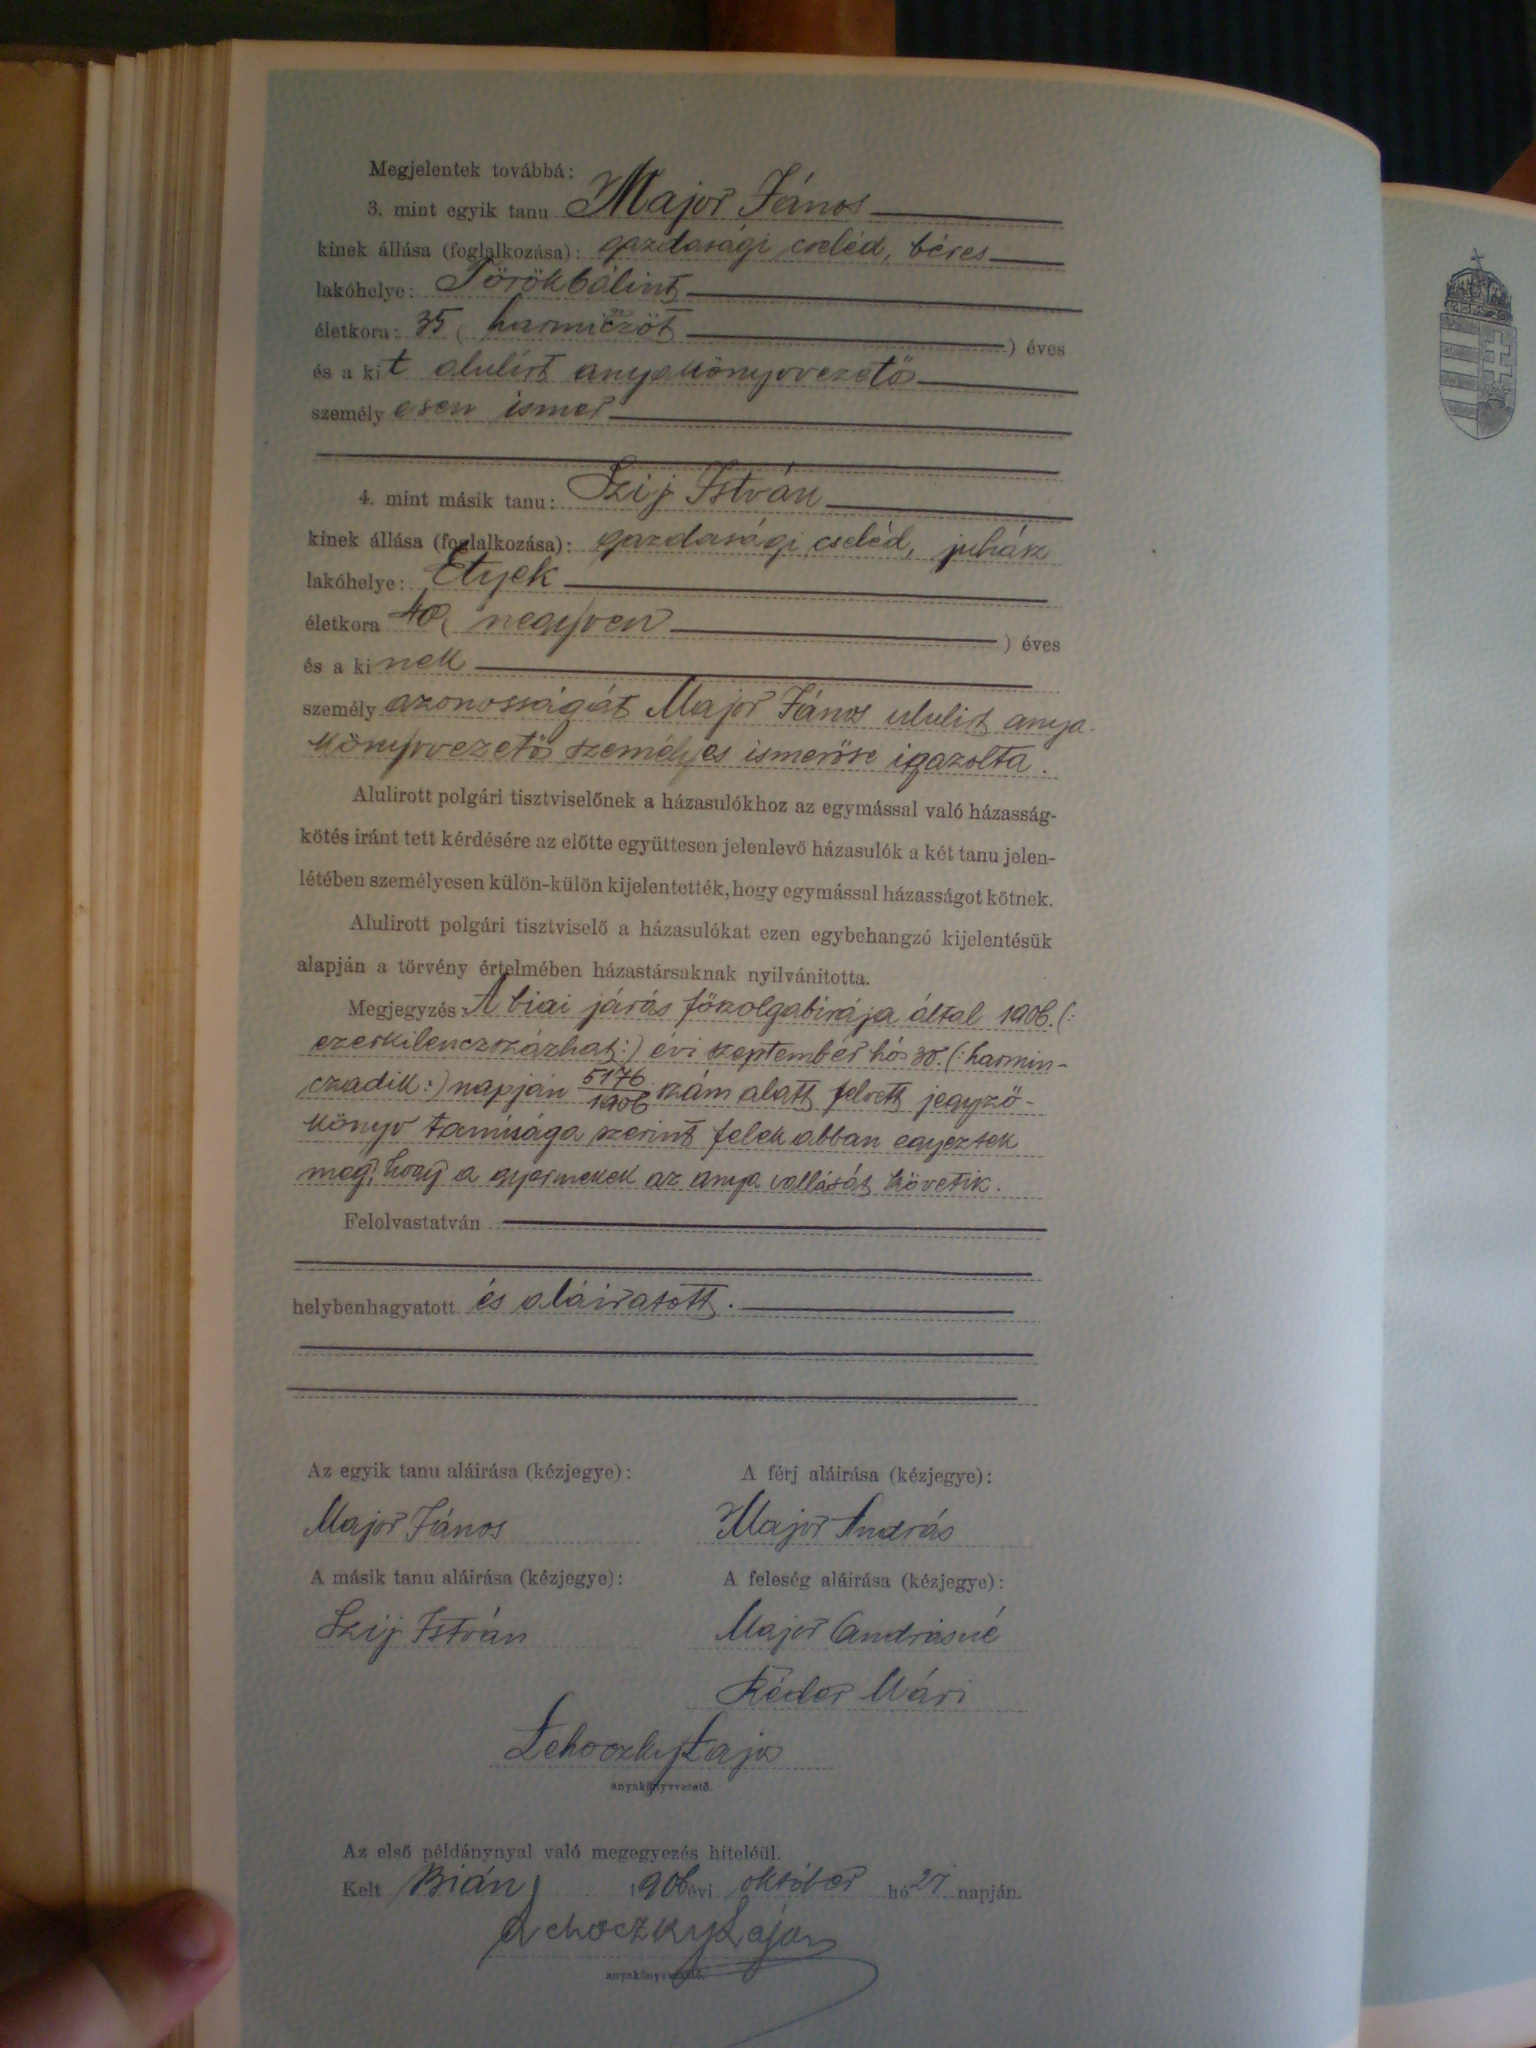 Megjelentek továbbá:
3. mint egyik tanu Major János
kinek állása (foglalkozása): gazdasági cseléd, béres
lakóhelye: Törökbálint
életkora: 35 ( harmiczöt ) éves
és a kit alulirt anyakönyvvezető
személyesen ismer
4. mint másik tanu: Szij István
kinek állása (foglalkozása): gazdasági cseléd, juhász
lakóhelye: Etyek
életkora 40 ( negyven ) éves
és a kinek
személyazonosságát Major János alulirt anya-
könyvvezető személyes ismerőse igazolta.
Alulirott polgári tisztviselőnek a házasulókhoz az egymással való házasság-
kötés iránt tett kérdésére az előtte együttesen jelenlevő házasulók a két tanu jelen-
létében személyesen külön-külön kijelentették, hogy egymással házasságot kötnek.
Alulirott polgári tisztviselő a házasulókat ezen egybehangzó kijelentésük
alapján a törvény értelmében házastársaknak nyilvánitotta.
Megjegyzés: A biai járás főszolgabirája által 1906. (:
ezerkilenczszázhat:) évi szeptember hó 30. (: harmin-
czadik:) napján 5176/1906 szám alatt felvett jegyző-
könyv tanúsága szerint felek abban egyeztek
meg, hogy a gyermekek az anya vallását követik.
Felolvastatván
helybenhagyatott és aláiratott.
Az egyik tanu aláirása (kézjegye): A férj aláirása (kézjegye):
Major János Major András
A másik tanu aláirása (kézjegye): A feleség aláirása (kézjegye):
Szij István Major Andrásné
Réder Mári
Lehoczky Lajos
anyakönyvvezető.
Az első példánynyal való megegyezés hiteléül.
Kelt Bián, 1906 évi október hó 27 napján.
Lehoczky Lajos
anyakönyvvezető.